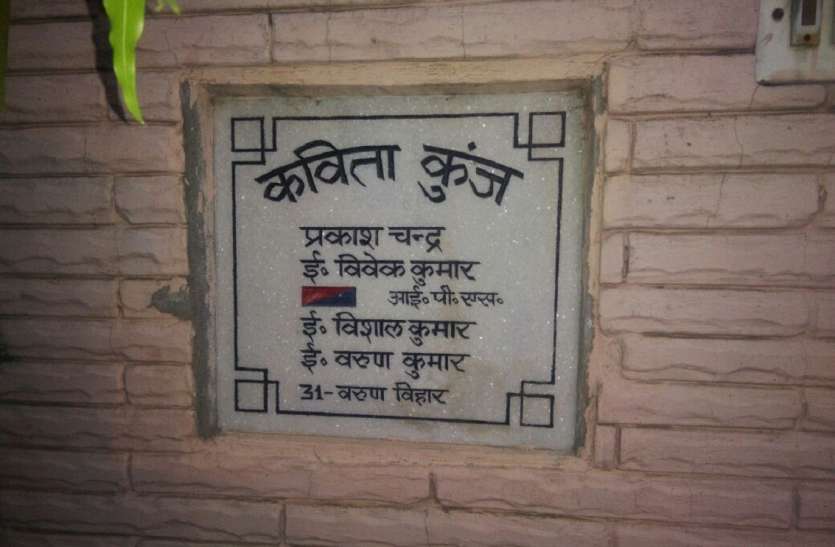 कविता कुंज
प्रकाश चन्द्र
ई॰ विवेक कुमार
आई॰ पी॰ एस॰
ई॰ विशाल कुमार
ई॰ वरुण कुमार
31- वरुण विहार